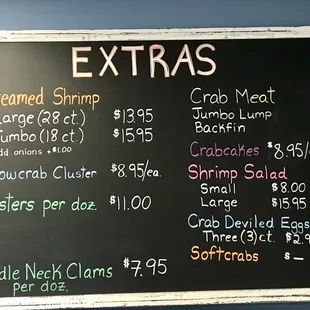 EXTRAS
eamed Shrimp
Large (28 ct.) $13.95
umbo (18 ct.) $15.95
dd onions +$1.00
owcrab Cluster $8.95/ea.
sters per doz. $11.00
dle Neck Clams $7.95
per doz.
Crab Meat
Jumbo Lump
Backfin
Crabcakes $8.95/
Shrimp Salad
Small $8.00
Large $15.95
Crab Deviled Eggs
Three (3) ct. $2.9
Softcrabs $—